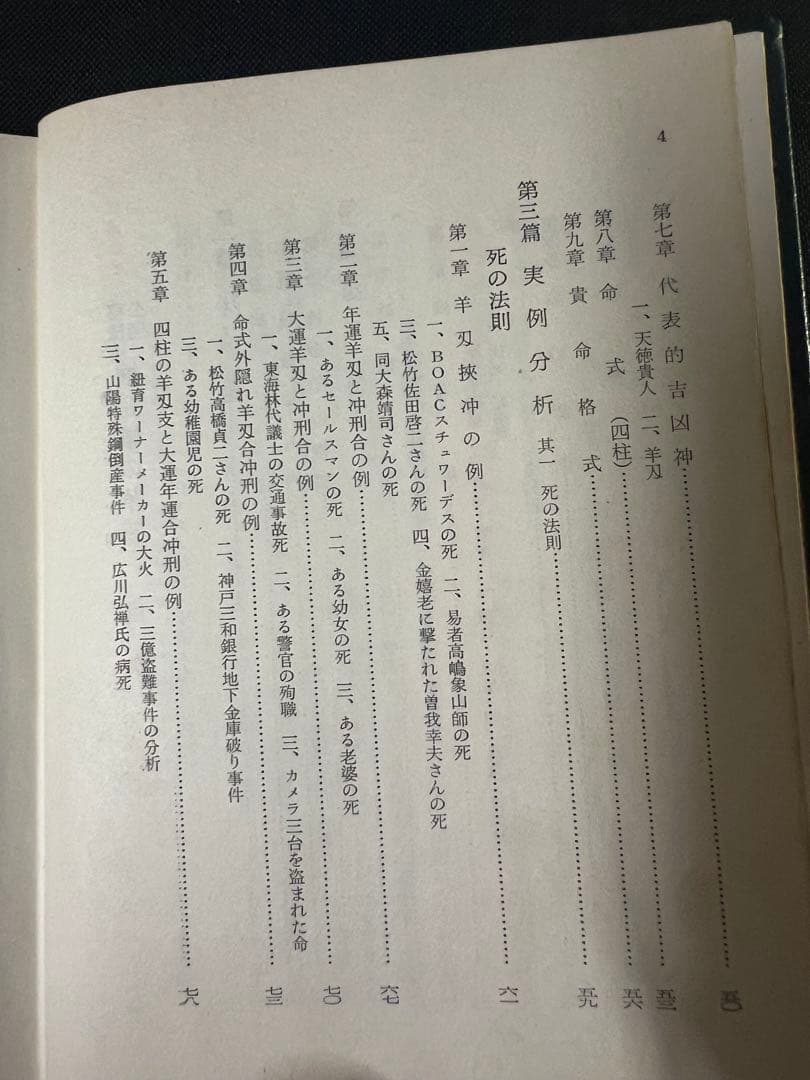 4
第七章 代表的吉凶神……五〇
一、天徳貴人 二、羊刃……五三
第八章 命式(四柱)……五六
第九章 貴命格式……五九
第三篇 実例分析 其一 死の法則
死の法則
第一章 羊刃挾冲の例……六一
一、BOACスチュワーデスの死 二、易者高嶋象山師の死
三、松竹佐田啓二さんの死 四、金嬉老に撃たれた曽我幸夫さんの死
五、同大森靖司さんの死
第二章 年運羊刃と冲刑合の例……六七
一、あるセールスマンの死 二、ある幼女の死 三、ある老婆の死
第三章 大運羊刃と冲刑合の例……七〇
一、東海林代議士の交通事故死 二、ある警官の殉職 三、カメラ三台を盗まれた命
第四章 命式外隠れ羊刃合冲刑の例……七三
一、松竹高橋貞二さんの死 二、神戸三和銀行地下金庫破り事件
三、ある幼稚園児の死
第五章 四柱の羊刃支と大運年運合冲刑の例……七八
一、紐育ワーナーメーカーの大火 二、三億盗難事件の分析
三、山陽特殊鋼倒産事件 四、広川弘禅氏の病死